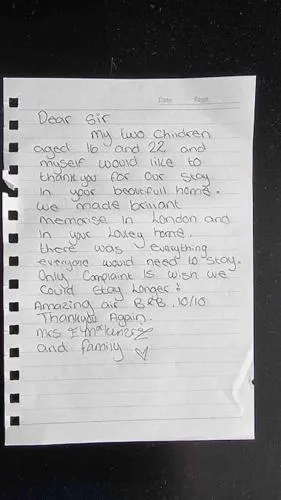 Date: Page:
Dear Sir
My two Children
aged 16 and 22 and
myself would like to
thankyou for our stay
In your beautifull home.
we made brillant
memorise In London and
In your Lovley home.
there was everything
everyone would need to stay.
Only Complaint Is wish we
Could stay Longer :
Amazing air B&B. 10/10
Thankyou Again.
Mrs
and family ♡